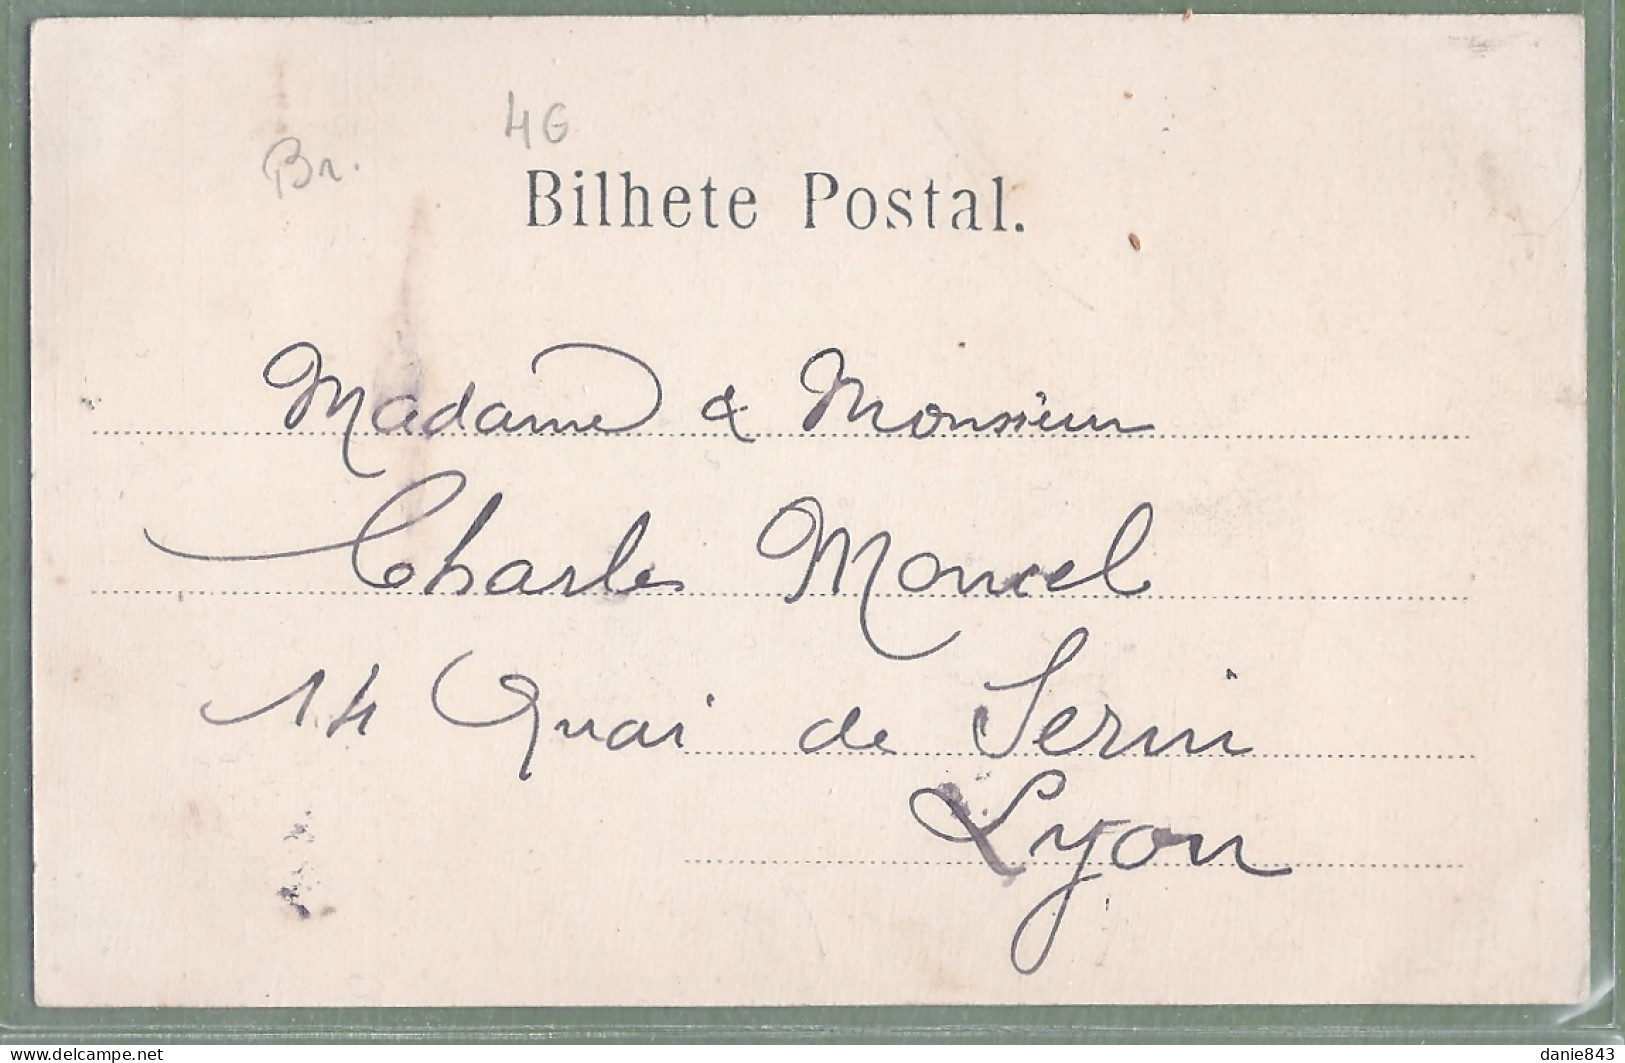 4G
Br.
Bilhete Postal.
Madame & Monsieur
Charles Moncel
14 Quai de Serin
Lyon
delcampe.net
danie843